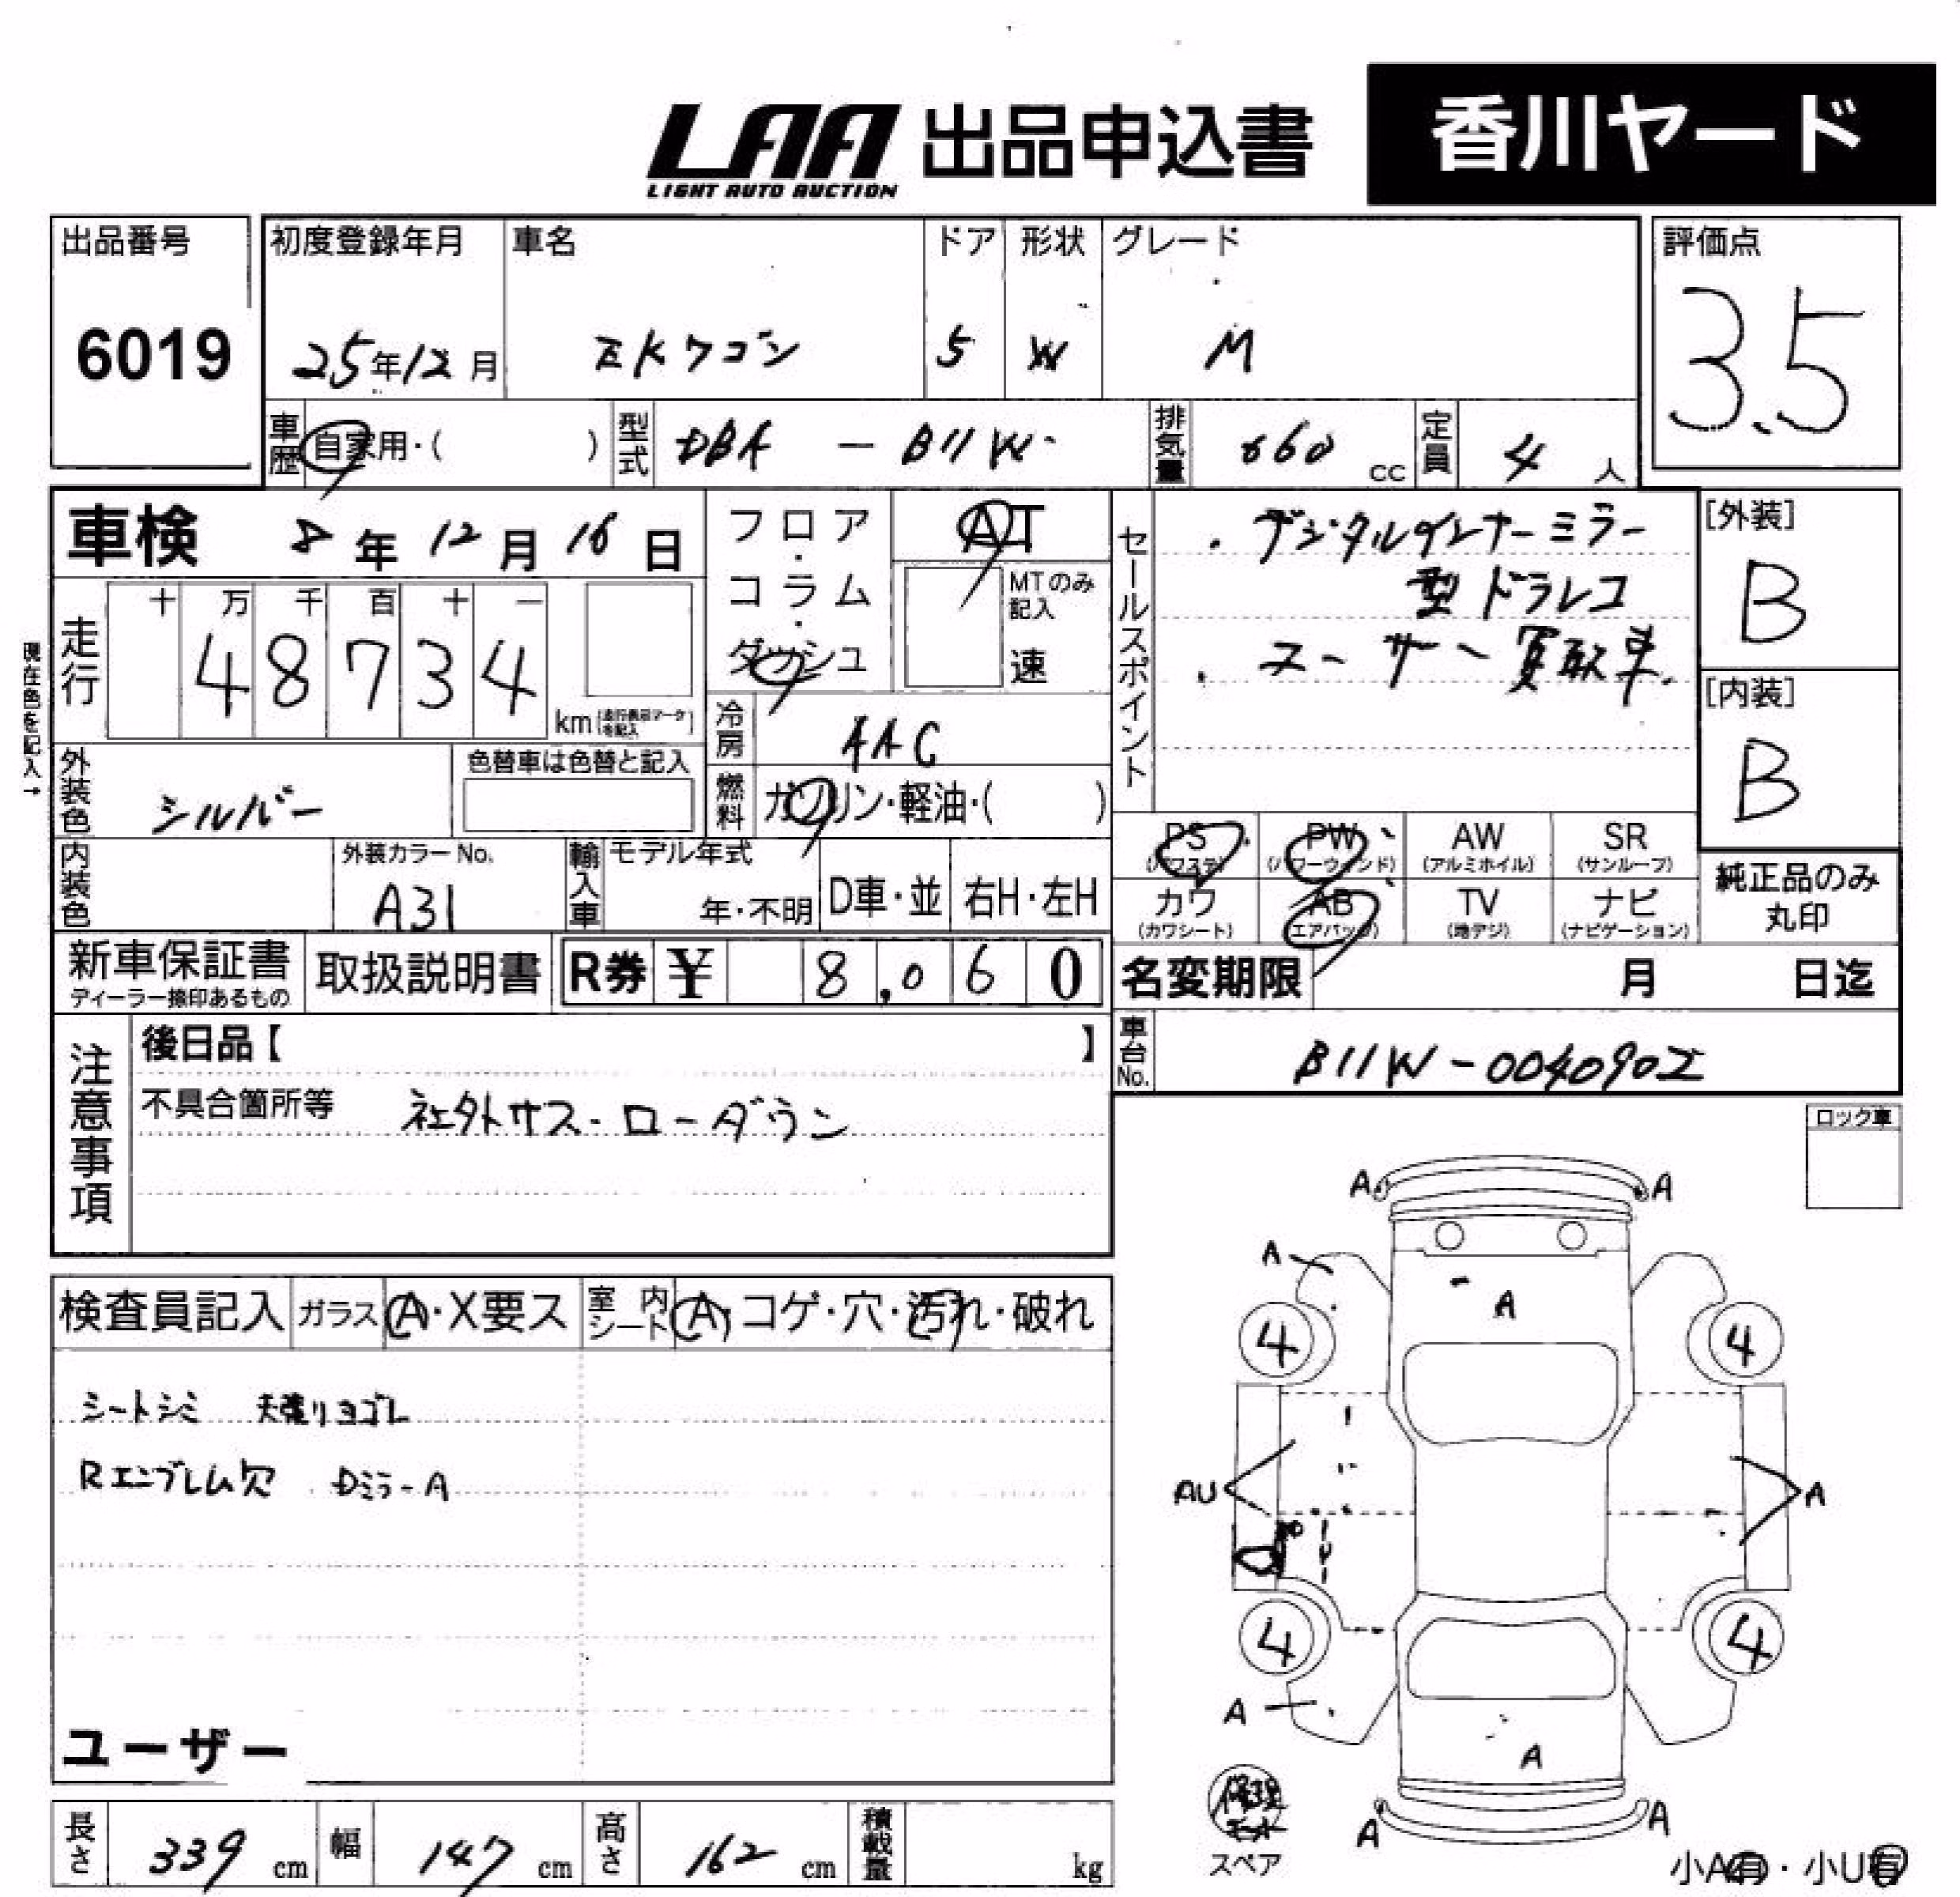 LAA 出品申込書 香川ヤード
LIGHT AUTO AUCTION
出品番号 初度登録年月 車名 ドア 形状 グレード 評価点
6019 25年12月 EKワゴン 5 W M 3.5
車歴 自家用・( ) 型式 DBA - B11W 排気量 660 cc 定員 4 人
車検 8年12月16日 フロア・コラム・ダッシュ AT
MTのみ記入 速
セールスポイント
・デジタルインナーミラー
型ドラレコ
・ユーザー買取車.
[外装]
B
[内装]
B
現在色を記入→
走行 十 万 千 百 十 一
48734 km (走行表示マークを記入)
冷房 AAC
外装色 シルバー 色替車は色替と記入
燃料 ガソリン・軽油・( )
PS (パワステ) PW (パワーウィンド) AW (アルミホイル) SR (サンルーフ)
カワ (カワシート) AB (エアバッグ) TV (地デジ) ナビ (ナビゲーション)
純正品のみ
丸印
内装色 外装カラーNo. A31 輸入車 モデル年式 年・不明 D車・並 右H・左H
新車保証書 ディーラー捺印あるもの 取扱説明書 R券 ¥ 8,060
名変期限 月 日迄
車台No. B11W-0040902
注意事項
後日品【 】
不具合箇所等 社外サス・ローダウン
ロック車
検査員記入 ガラス A・X要ス 室内シート A・コゲ・穴・汚れ・破れ
シートシミ 天張りヨゴレ
Rエンブレム欠 Dミラー A
ユーザー
A A
A
A
4 4
AU A
4 4
A
A
A A
修理キット
スペア
小A有・小U有
長さ 339 cm 幅 147 cm 高さ 162 cm 積載量 kg